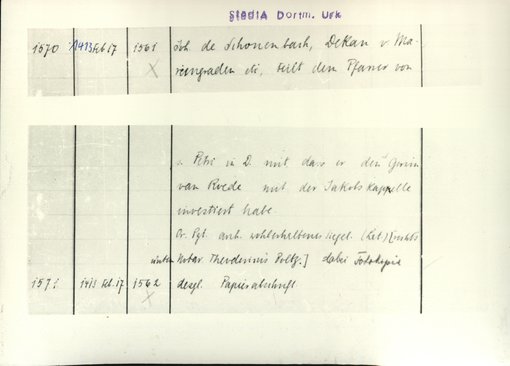 StadtA Dortm. Urk
1570 1413 Feb 17 1561 Joh de Schonenbach, Dekan v Ma-
riengraden etc, teilt den Pfarrer von
s. Petri in D. mit, dass er den Gerwin
van Rvede mit der Jakobskappelle
investiert habe.
Or. Pgt. anh. wohlerhaltenes Siegel. (Lat.) [rechts
unten Notar. Theodericus Poltg.] dabei Fotokopie
157 1413 Feb. 17 1562 desgl. Papierabschrift